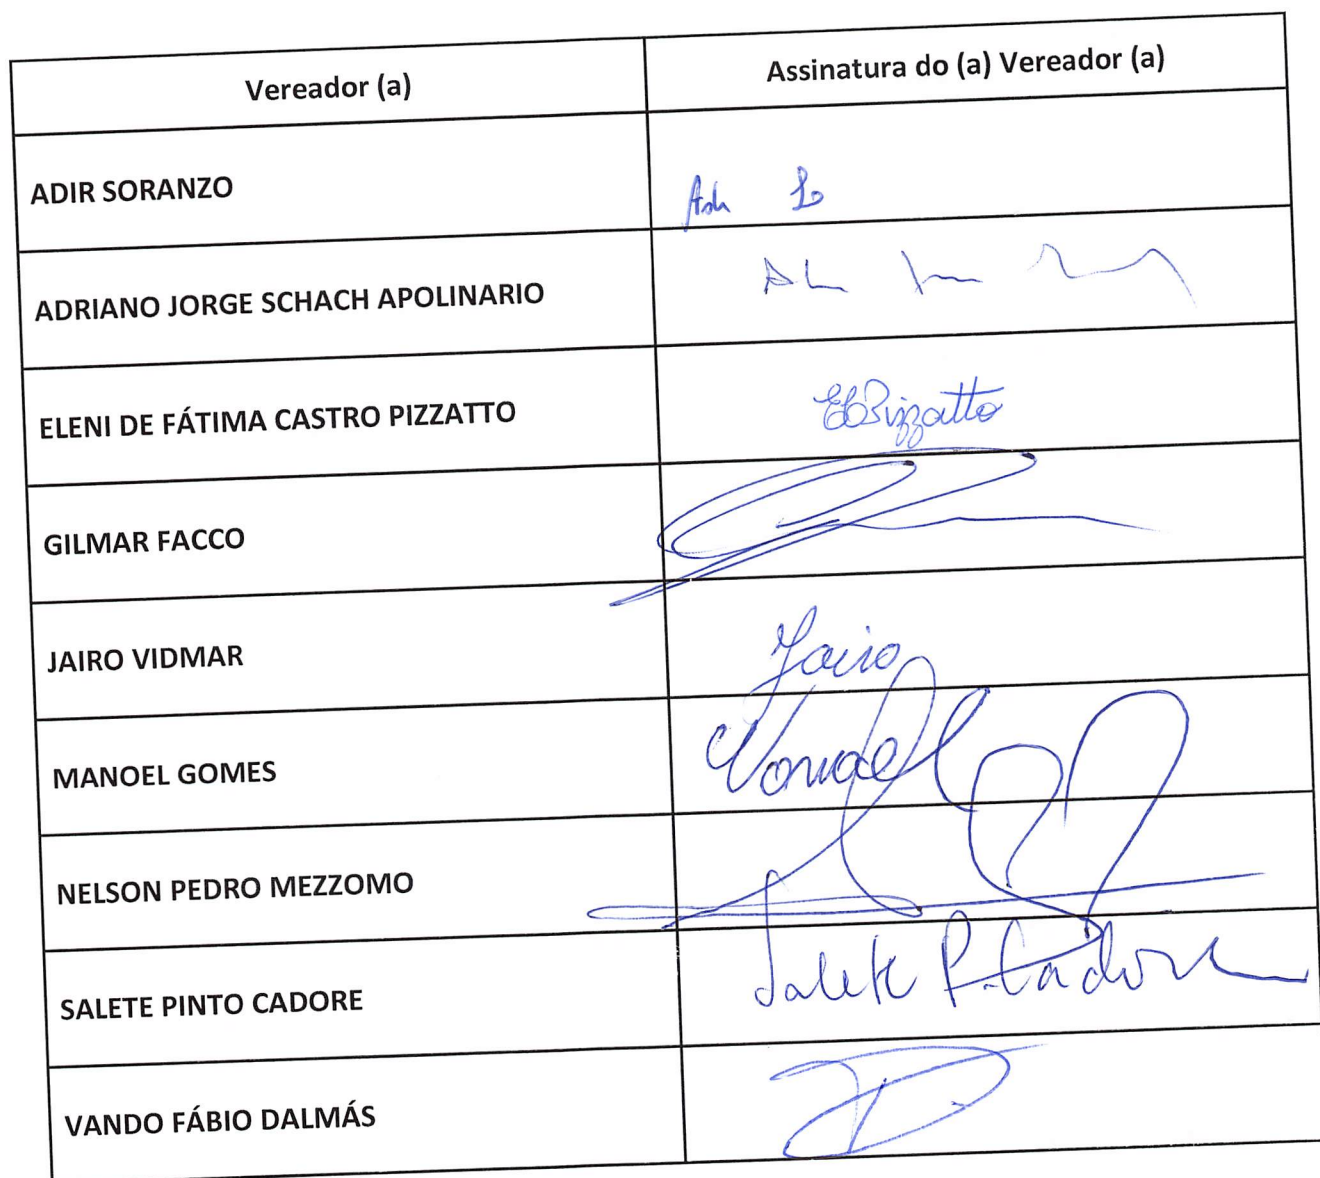 Vereador (a)
Assinatura do (a) Vereador (a)
ADIR SORANZO
ADRIANO JORGE SCHACH APOLINARIO
ELENI DE FÁTIMA CASTRO PIZZATTO
Pizzatto
GILMAR FACCO
JAIRO VIDMAR
Jairo
MANOEL GOMES
NELSON PEDRO MEZZOMO
SALETE PINTO CADORE
Salete P. Cadore
VANDO FÁBIO DALMÁS